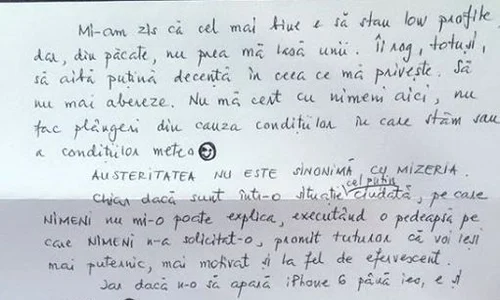 Mi-am zis că cel mai bine e să stau low profile,
dar, din păcate, nu prea mă lasă unii. Îi rog, totuși,
să aibă puțină decență în ceea ce mă privește. Să
nu mai abereze. Nu mă cert cu nimeni aici, nu
fac plângeri din cauza condițiilor în care stăm sau
a condițiilor meteo
AUSTERITATEA NU ESTE SINONIMĂ CU MIZERIA.
Chiar dacă sunt într-o situație cel puțin ciudată, pe care
NIMENI nu mi-o poate explica, executând o pedeapsă pe
care NIMENI n-a solicitat-o, promit tuturor că voi ieși
mai puternic, mai motivat și la fel de efervescent.
Iar dacă n-o să apară iPhone 6 până ies, e și